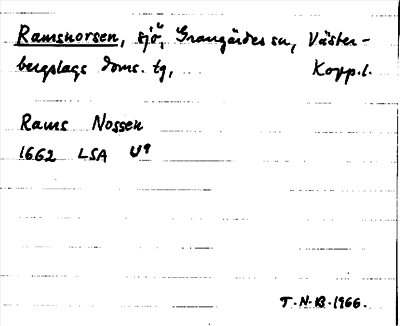 Ramsnorsen, sjö, Grangärdes sn, Väster-
bergslags doms. tg, Kopp.l.
Rams Nossen
1662 LSA U9
T.N.B.1966.